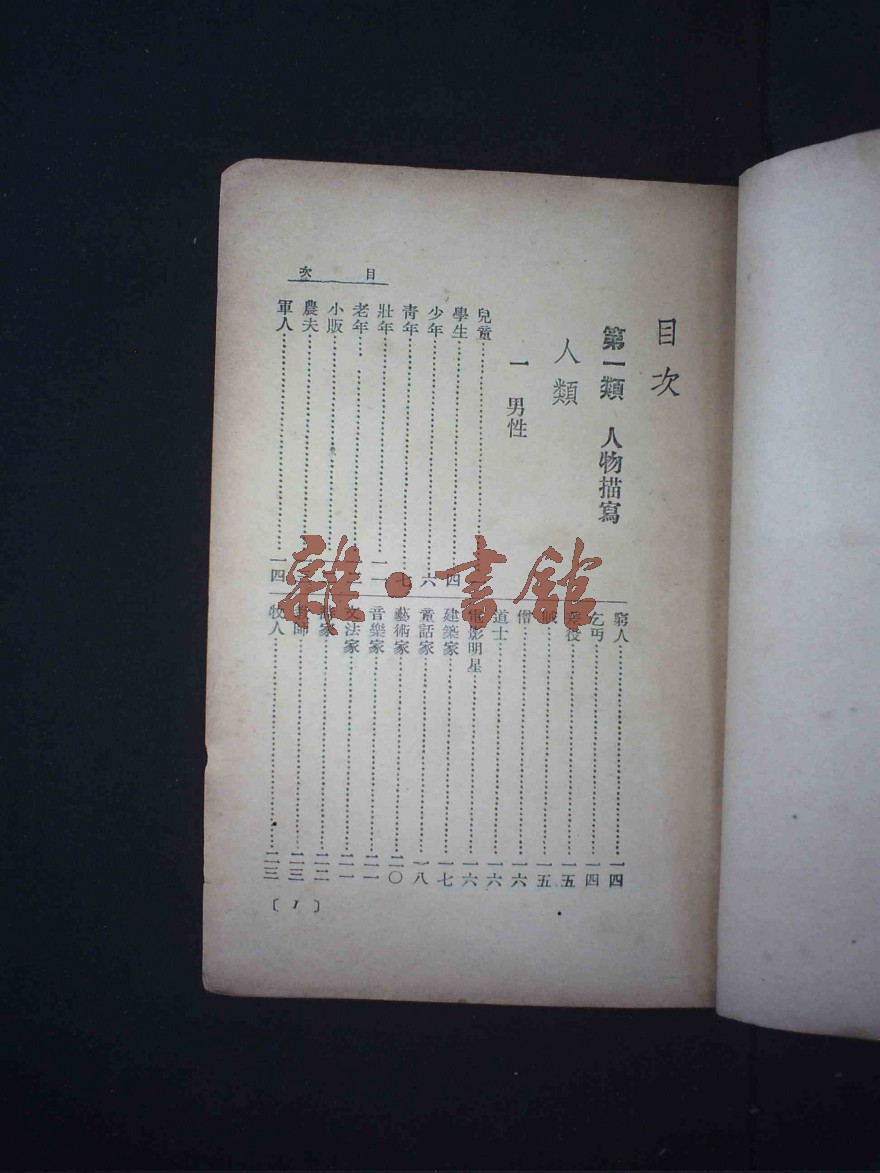 目次
第一類 人物描寫
人類
一 男性
兒童
學生……四
少年……六
青年……七
壯年……一一
老年
小販
農夫
軍人……一四
窮人……一四
乞丐……一四
役……一五
一五
僧……一六
道士……一六
電影明星……一六
建築家……一七
童話家……一八
藝術家……二〇
音樂家……二一
文法家……二一
家……二二
師……二三
牧人……二三
目次
〔1〕
雜·書館